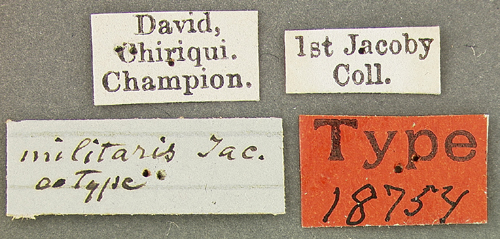 David,
Chiriqui.
Champion.
1st Jacoby
Coll.
militaris Jac.
cotype
Type
18754